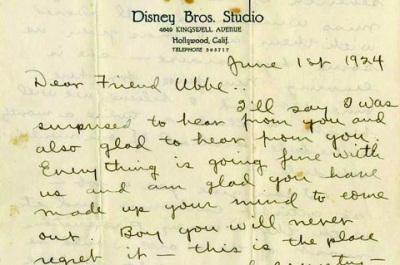 Disney Bros. Studio
4649 KINGSWELL AVENUE
Hollywood, Calif.
TELEPHONE 595717
June 1st 1924
Dear Friend Ubbe..
I'll say I was
surprised to hear from you and
also glad to hear from you.
Everything is going fine with
us and am glad you have
made up your mind to come
out. Boy you will never
regret it — this is the place